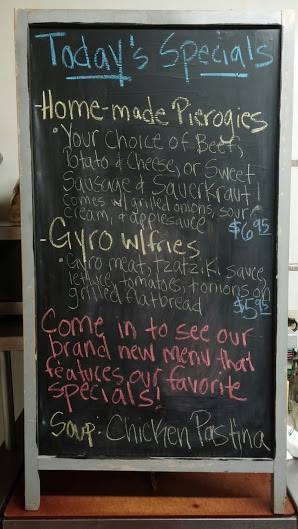 Today's Specials
-Home-made Pierogies
• Your Choice of Beef,
Potato & Cheese, or Sweet
Sausage & Sauerkraut!
comes w/ grilled onions, sour
cream, & applesauce $6.95
-Gyro w/fries
• Gyro meat, tzatziki sauce,
lettuce, tomatoes, + onions on
grilled flatbread $5.95
Come in to see our
brand new menu that
features our favorite
specials!
Soup: Chicken Pastina